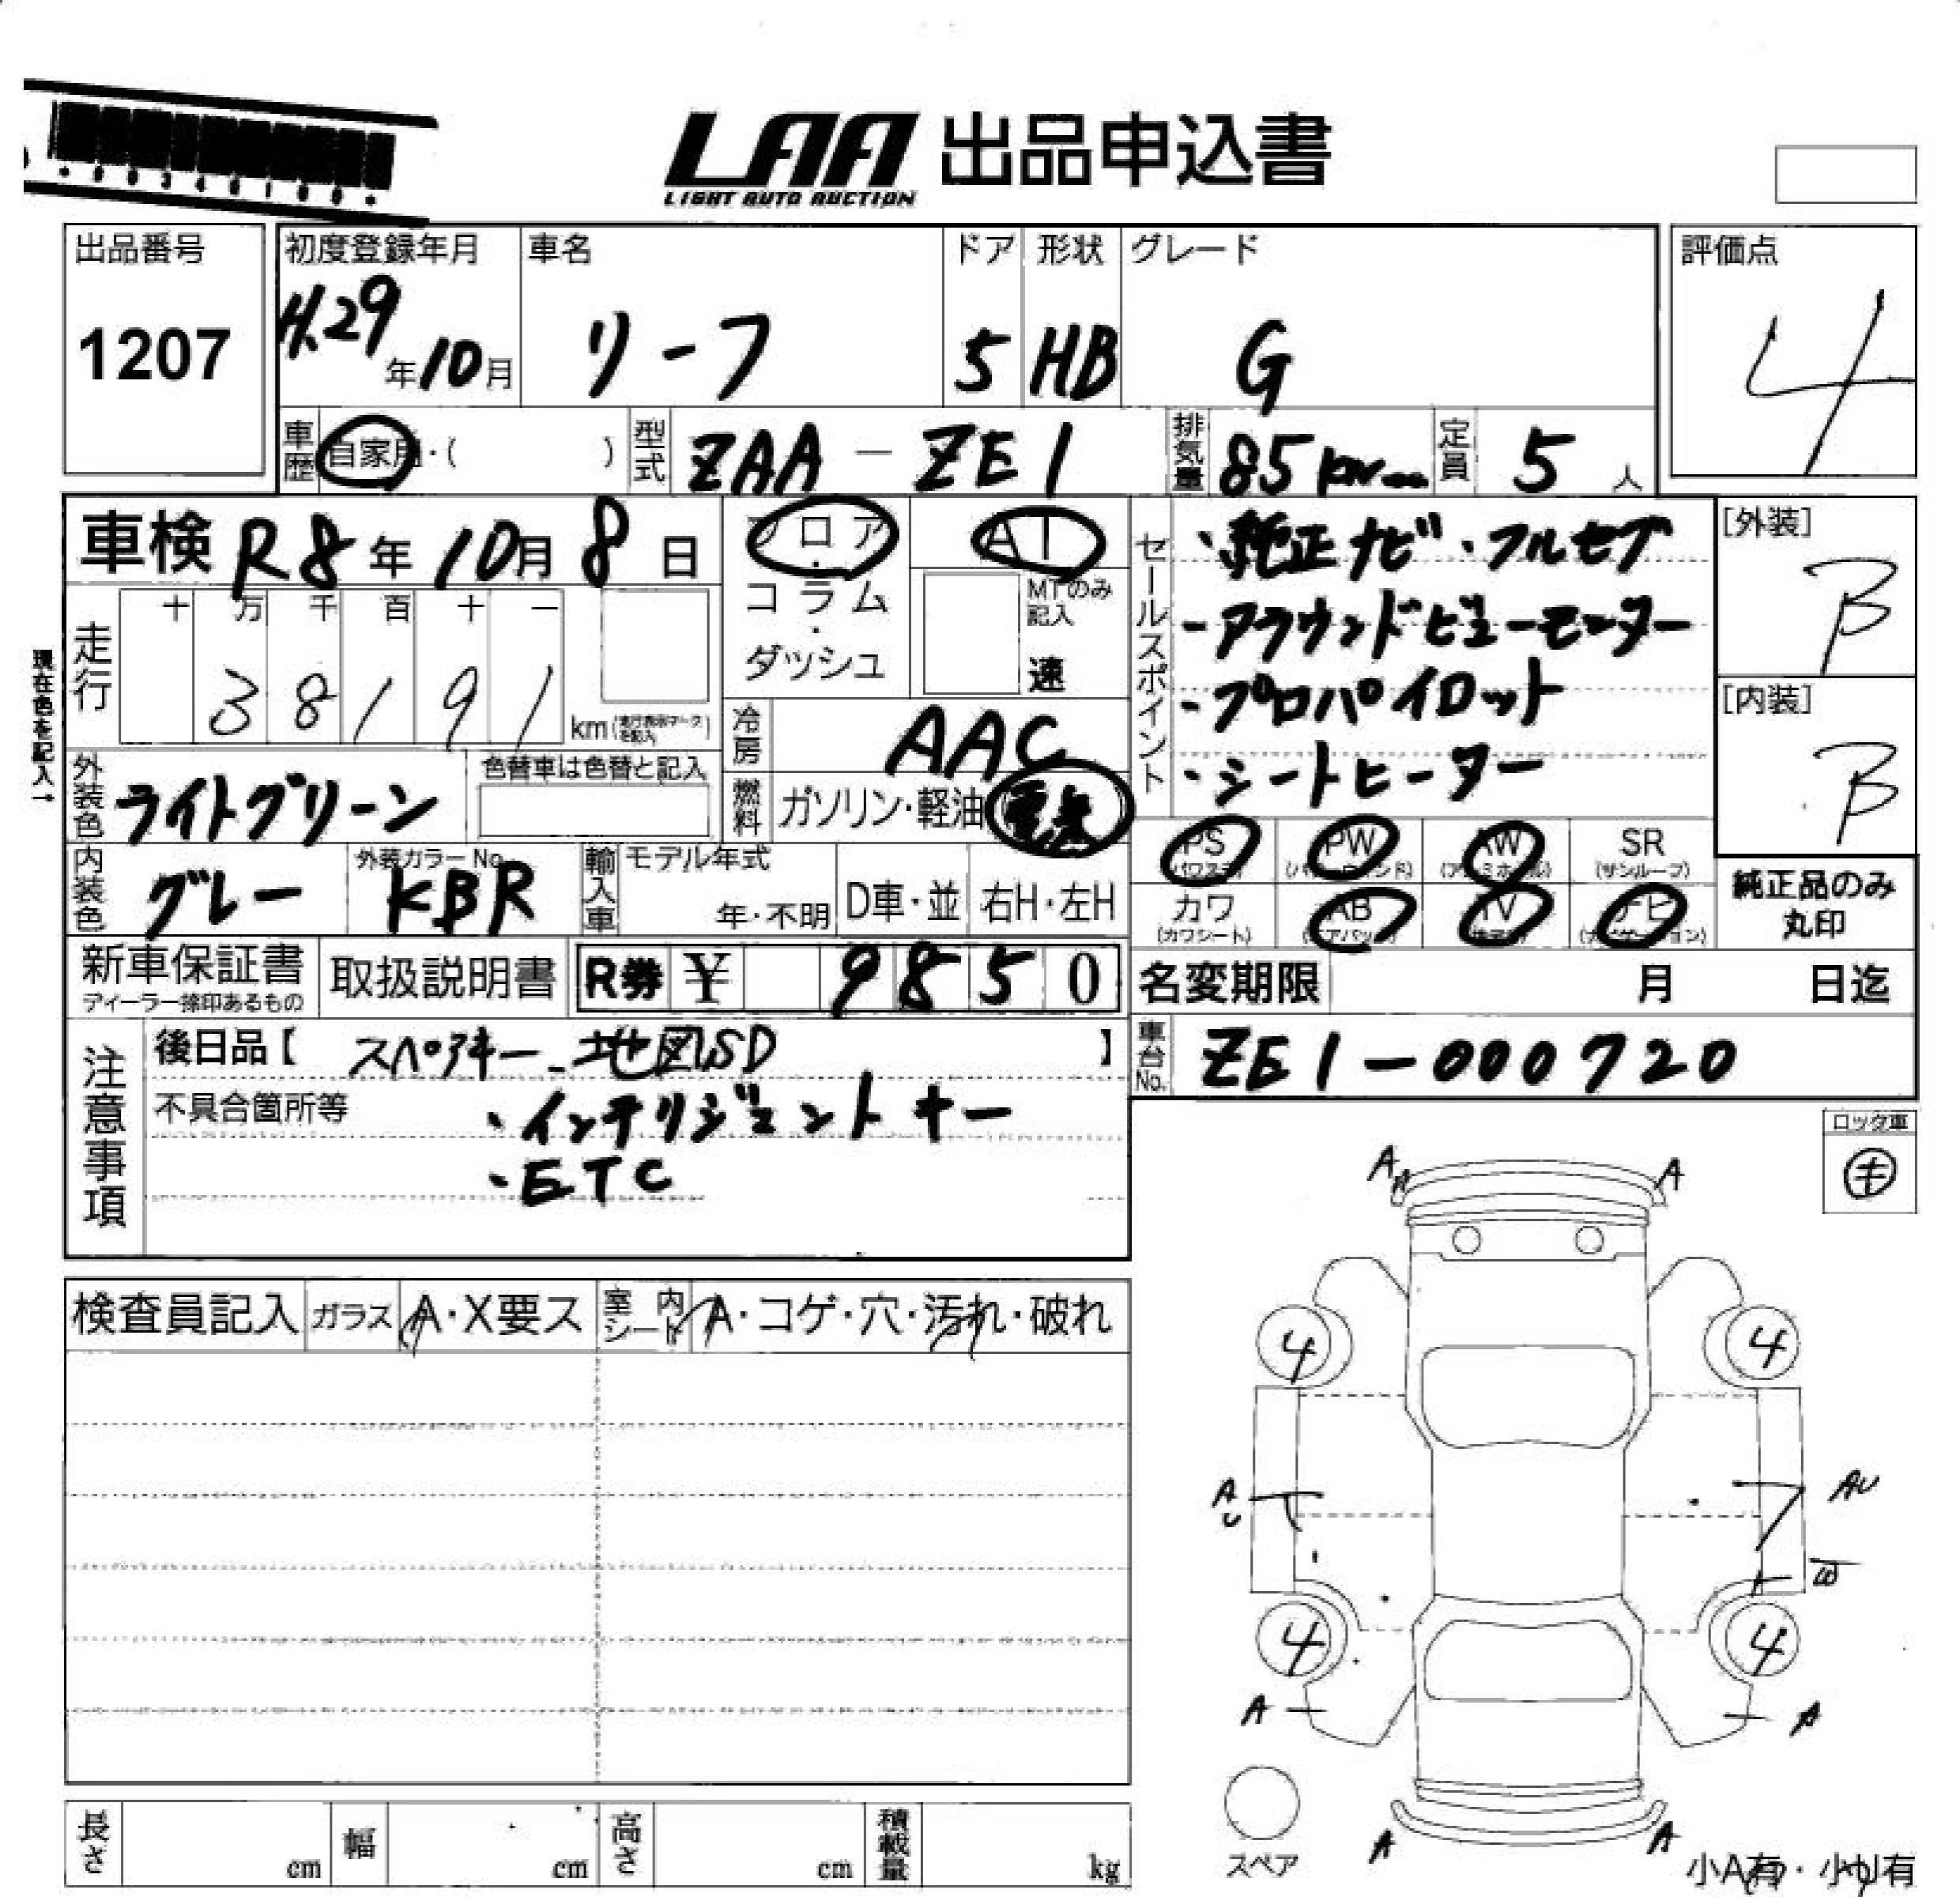 LAA 出品申込書
LIGHT AUTO AUCTION
出品番号
1207
初度登録年月
H.29年10月
車名
リーフ
ドア
5
形状
HB
グレード
G
評価点
4
車歴 自家用・( )
型式 ZAA-ZE1
排気量 85
定員 5人
車検 R8年10月8日
フロア・コラム・ダッシュ
AT
MTのみ記入
速
走行
十 万 千 百 十 一
3 8 1 9 1
km(走行表示マークを記入)
現在色を記入→
冷房 AAC
外装色 ライトグリーン
色替車は色替と記入
燃料 ガソリン・軽油 電気
内装色 グレー
外装カラーNo. KBR
輸入車 モデル年式
年・不明
D車・並
右H・左H
セールスポイント
・純正ナビ・フルセグ
-アラウンドビューモニター
-プロパイロット
・シートヒーター
[外装]
B
[内装]
B
PS (パワステ)
PW (パワーウィンド)
AW (アルミホイル)
SR (サンルーフ)
カワ (カワシート)
AB (エアバッグ)
TV
ナビ (ナビゲーション)
純正品のみ丸印
新車保証書
ディーラー捺印あるもの
取扱説明書
R券 ¥ 9850
名変期限 月 日迄
車台No. ZE1-000720
注意事項
後日品【 スペアキー 地図SD 】
不具合箇所等
・インテリジェントキー
・ETC
ロック車
キ
検査員記入 ガラス A・X要ス 室内シート A・コゲ・穴・汚れ・破れ
A A
4 4
A U AU
4 4
A A
スペア
A A
小A有・小U有
長さ cm 幅 cm 高さ cm 積載量 kg